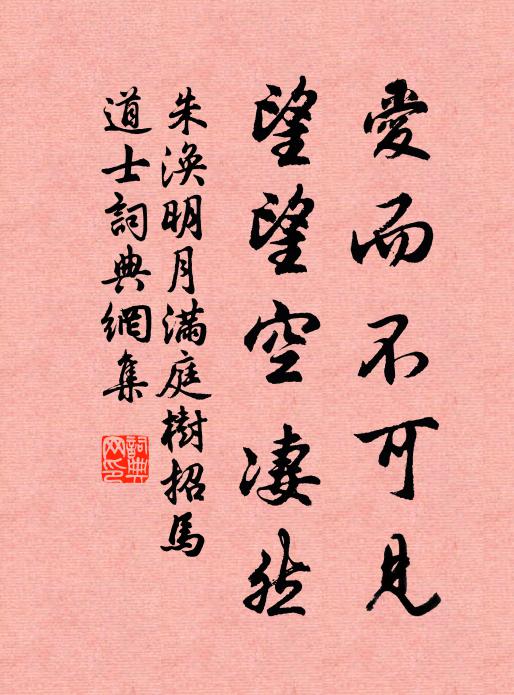 愛而不可見
望望空凄然
朱渙明月滿庭樹招馬
道士詞典網集
詞典網印